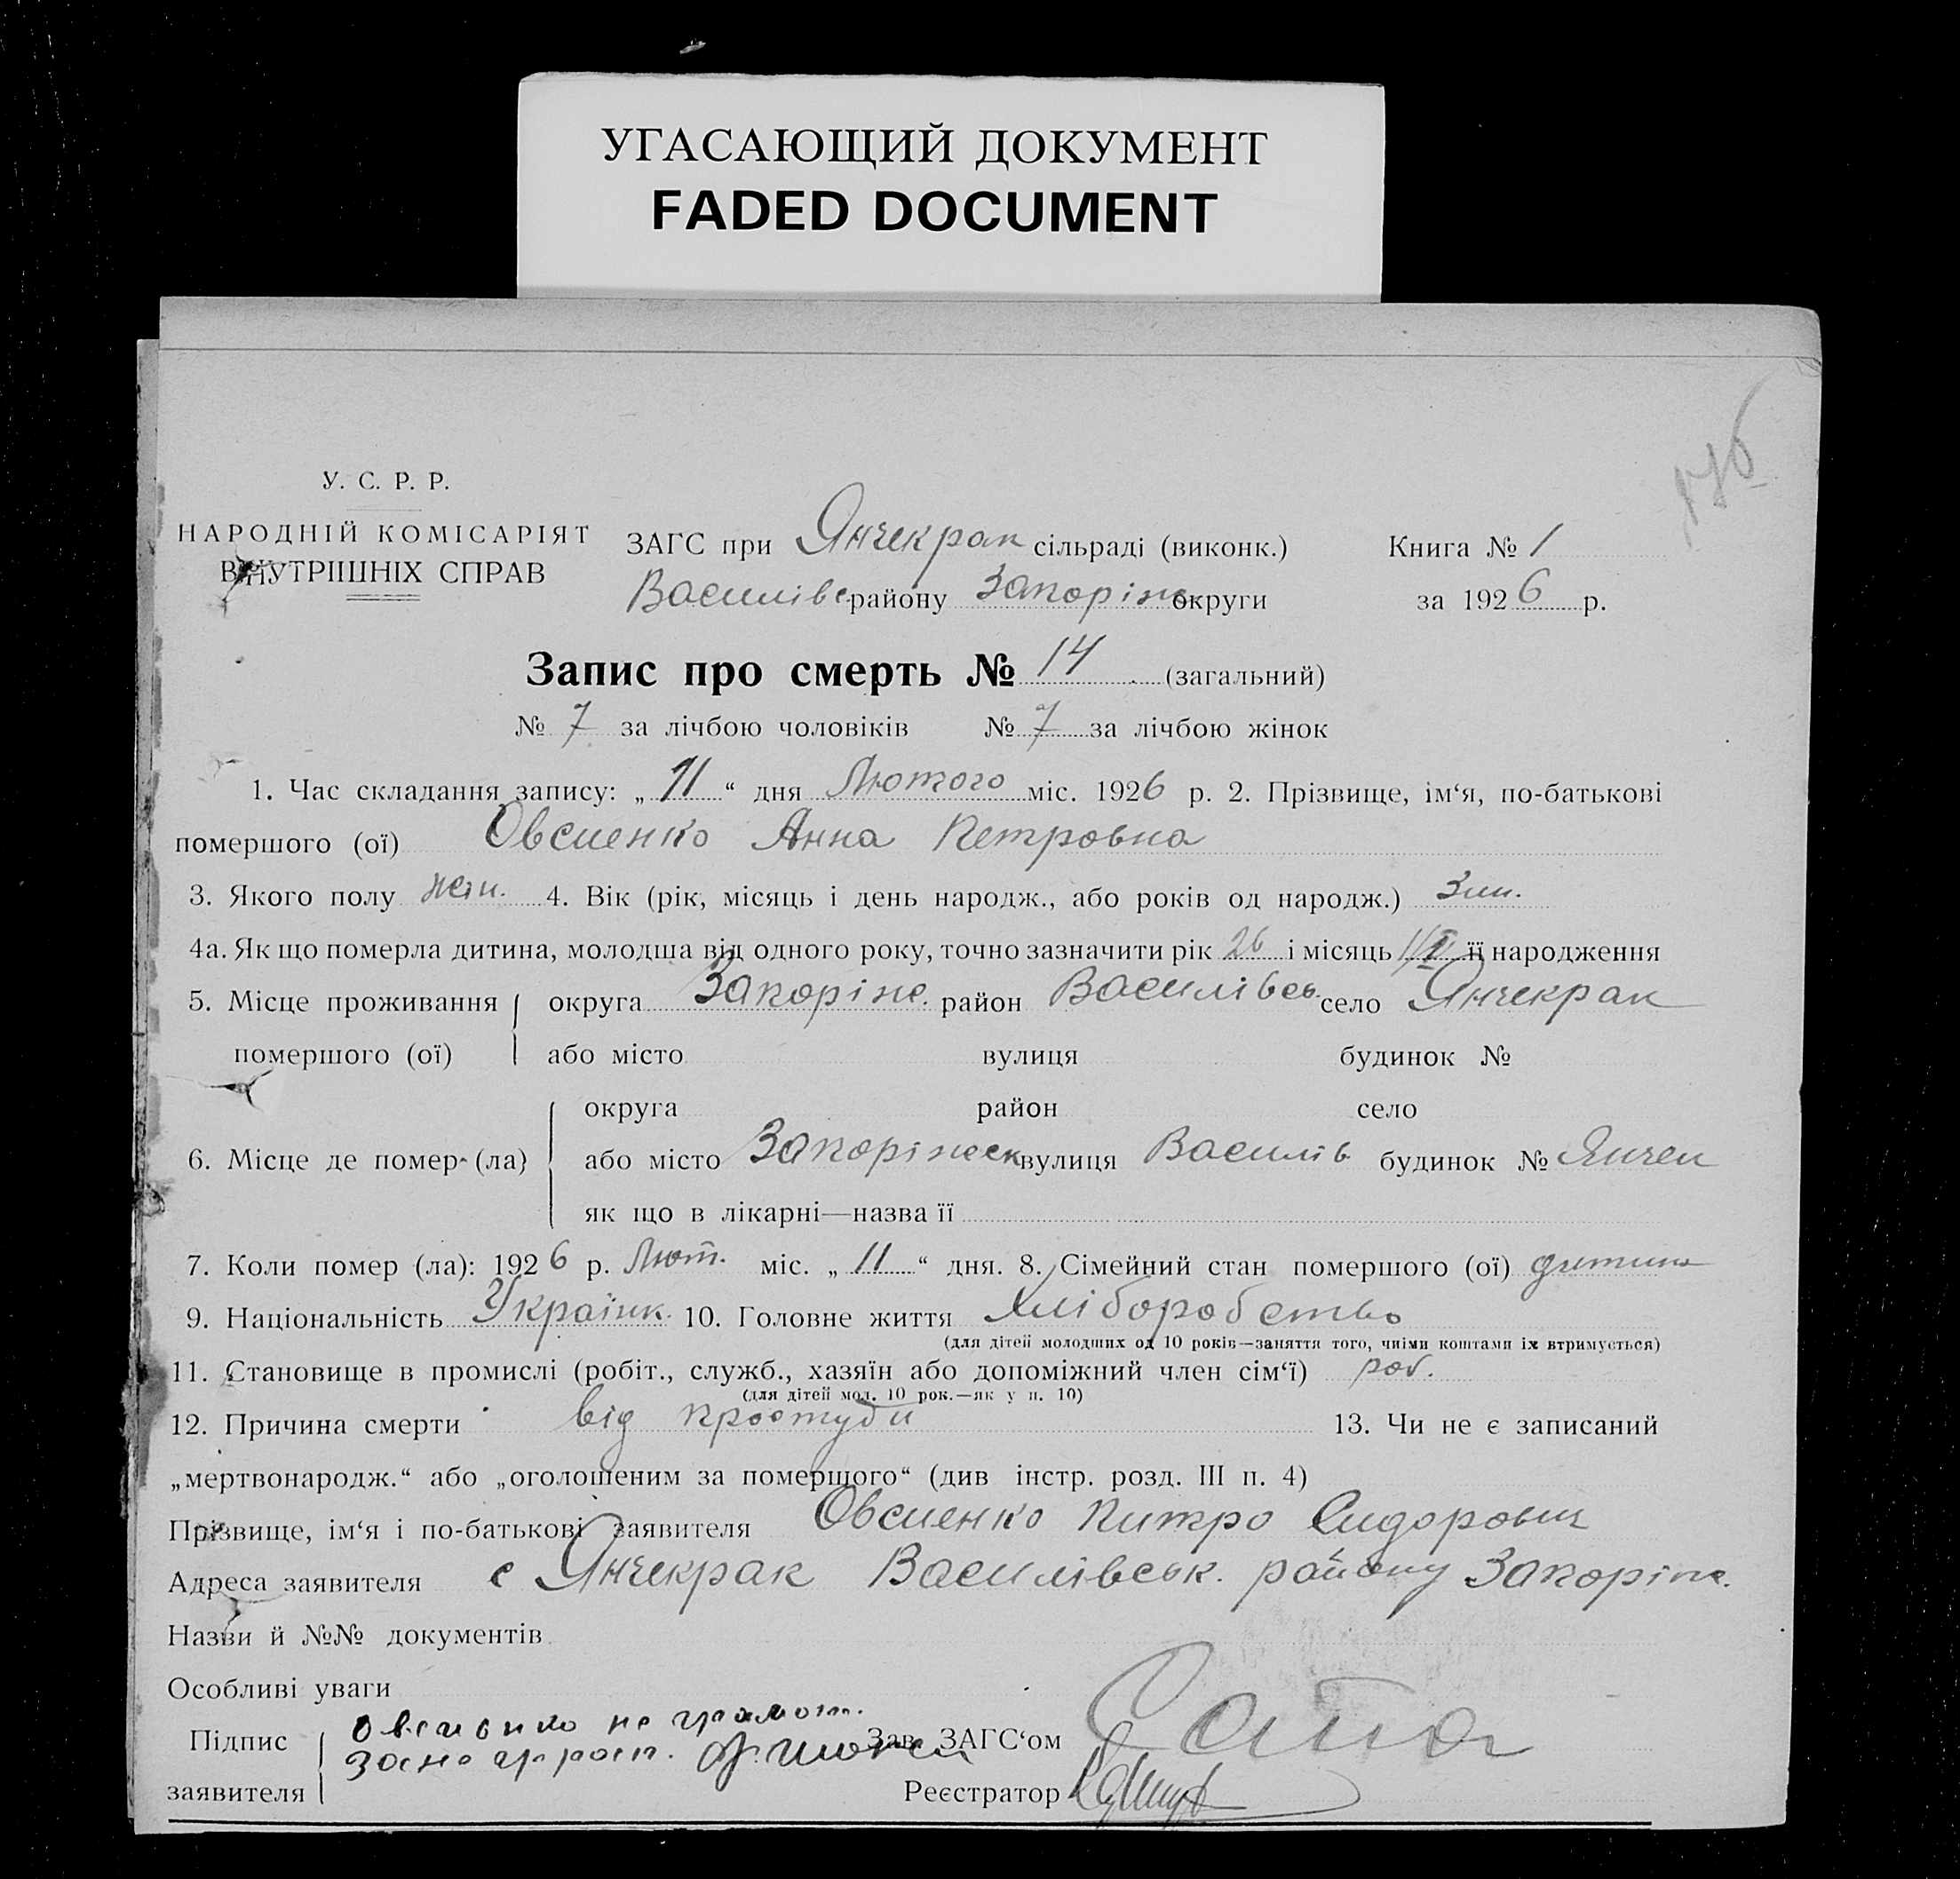 УГАСАЮЩИЙ ДОКУМЕНТ
FADED DOCUMENT
У. С. Р. Р.
НАРОДНІЙ КОМІСАРІЯТ
ВНУТРІШНІХ СПРАВ
ЗАГС при Янчекрак сільраді (виконк.) Книга № 1
Василівс. району Запоріж. округи за 1926 р.
Запис про смерть № 14 (загальний)
№ 7 за лічбою чоловіків № 7 за лічбою жінок
1. Час складання запису: „11“ дня Лютого міс. 1926 р. 2. Прізвище, ім‘я, по-батькові
помершого (ої) Овсиенко Анна Петровна
3. Якого полу жін. 4. Вік (рік, місяць і день народж., або років од народж.) 3 м.
4а. Як що померла дитина, молодша від одного року, точно зазначити рік 26 і місяць її народження
5. Місце проживання округа Запоріж. район Василівсь. село Янчекрак
помершого (ої) або місто вулиця будинок №
округа район село
6. Місце де помер (ла) або місто Запоріжськ вулиця Василів будинок № Янчек
як що в лікарні—назва її
7. Коли помер (ла): 1926 р. Лют. міс. „11“ дня. 8. Сімейний стан помершого (ої) дитина
9. Національність Українк. 10. Головне життя Хліборобство
(для дітей молодших од 10 років—заняття того, чиїми коштами їх втримується)
11. Становище в промислі (робіт., служб., хазяїн або допоміжний член сім‘ї) роб.
(для дітей мол. 10 рок.—як у п. 10)
12. Причина смерти від простуди 13. Чи не є записаний
„мертвонародж.“ або „оголошеним за померщого“ (див інстр. розд. III п. 4)
Прізвище, ім‘я і по-батькові заявителя Овсиенко Питро Сидорович
Адреса заявителя с Янчекрак Василівськ. району Запоріж.
Назви й №№ документів
Особливі уваги
Підпис Овсиенко не грамот. Зав. ЗАГС‘ом
заявителя Реєстратор